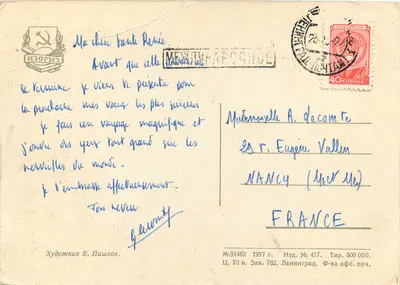 Ma chère tante Renée
Avant que cette année
se termine je viens te présenter pour
la prochaine mes vœux les plus sincères
je fais un voyage magnifique et
j'ouvre des yeux tout grand sur les
merveilles du monde.
je t'embrasse affectueusement.
Ton neveu
МЕЖДУНАРОДНОЕ
ЛЕНИНГРАД
ПОЧТАМТ
40 КОПЕЕК
ИЗОГИЗ
Mademoiselle R. Lecomte
29 r. Eugène Vallin
NANCY
FRANCE
Художник Е. Пашков.
М-33463 1957 г. Изд. № 417. Тир. 800 000.
Ц. 20 к. Зак. 762. Ленинград. Ф-ка офс. печ.